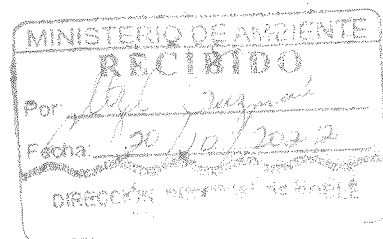 MINISTERIO DE AMBIENTE
RECIBIDO
Por: Guzmán
Fecha: 20/10/2022
DIRECCIÓN de